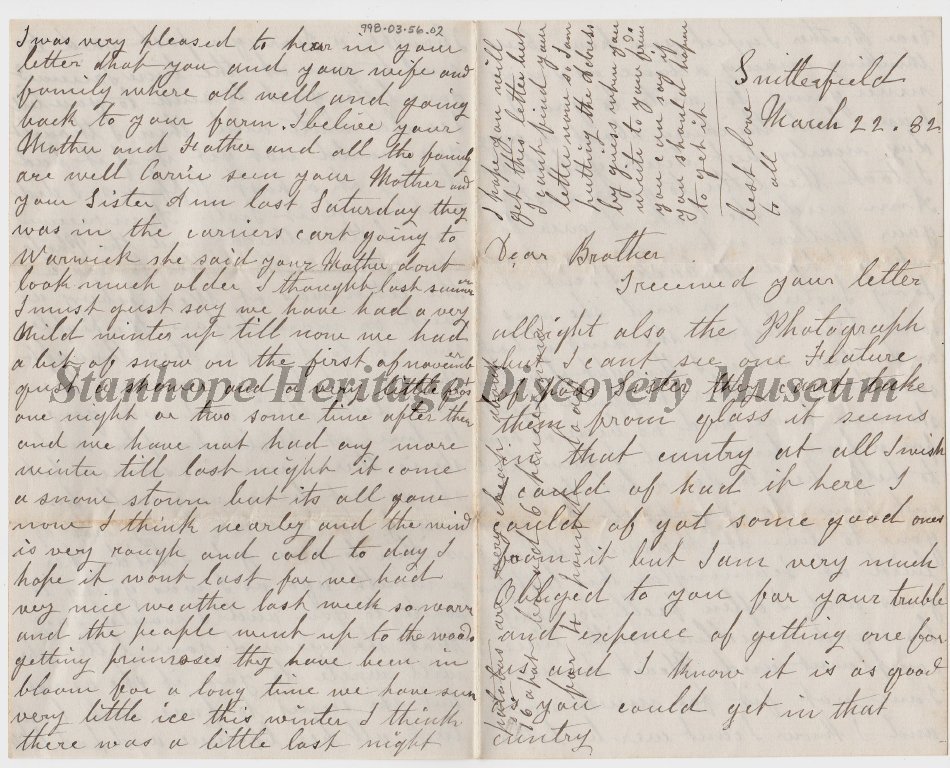 998-03-56.02
Snitterfield
March 22. 82
Dear Brother
I received your letter
allright also the Photograph
but I cant see one Feature
of poor sister they cant take
them from glass it seems
in that cuntry at all I wish
I could of had it here I
could of got some good ones
from it but I am very much
Obliged to you for your truble
and expence of getting one for
us and I know it is as good
as you could get in that
cuntry
I was very pleased to hear in your
letter that you and your wife and
family where all well and going
back to your farm. I belive your
Mother and Father and all the family
are well Carrie seen your Mother and
your Sister Ann last Saturday they
was in the carriers cart going to
Warwick she said your Mother dont
look much older I thought last summer
I must just say we have had a very
Mild winter up till now we had
a bit of snow on the first of november
just a shower and a very little frost
one night or two some time after then
and we have not had any more
winter till last night it come
a snow storm but its all gone
now I think nearly and the wind
is very rough and cold to day I
hope it wont last for we had
very nice weather last week so warm
and the people went up to the woods
getting primroses they have been in
bloom for a long time we have sun
very little ice this winter I think
there was a little last night
I hope you will
get this letter but
I cant find your
letter none so I am
putting the adress
by guess when you
write to your prin
you can say if
you should hapen
to get it
best love
to all
potatoes are very cheap
6 a pot
for 4 pounds
Stanhope Heritage Discovery Museum